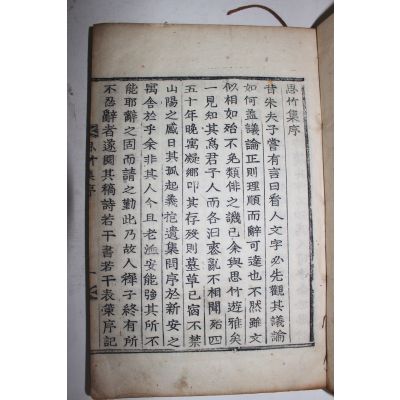 思竹集序
昔朱夫子嘗有言曰看人文字必先觀其議論
如何盖議論正則理順而辭可達也不然雖文
似相如殆不免類俳之譏已余與思竹遊雅矣
一見知其爲君子人而各汩衰亂不相聞殆四
五十年晩寓凝鄕叩其存殁則墓草已宿不禁
山陽之感日其孤起義抱遺集問序於新安之
寓舍於乎余非其人今且老洫安能強其所不
能耶辭之固而請之勤此乃故人稺子終有所
不忍辭者遂閱其稿詩若干書若干表策序記
思竹集序
一